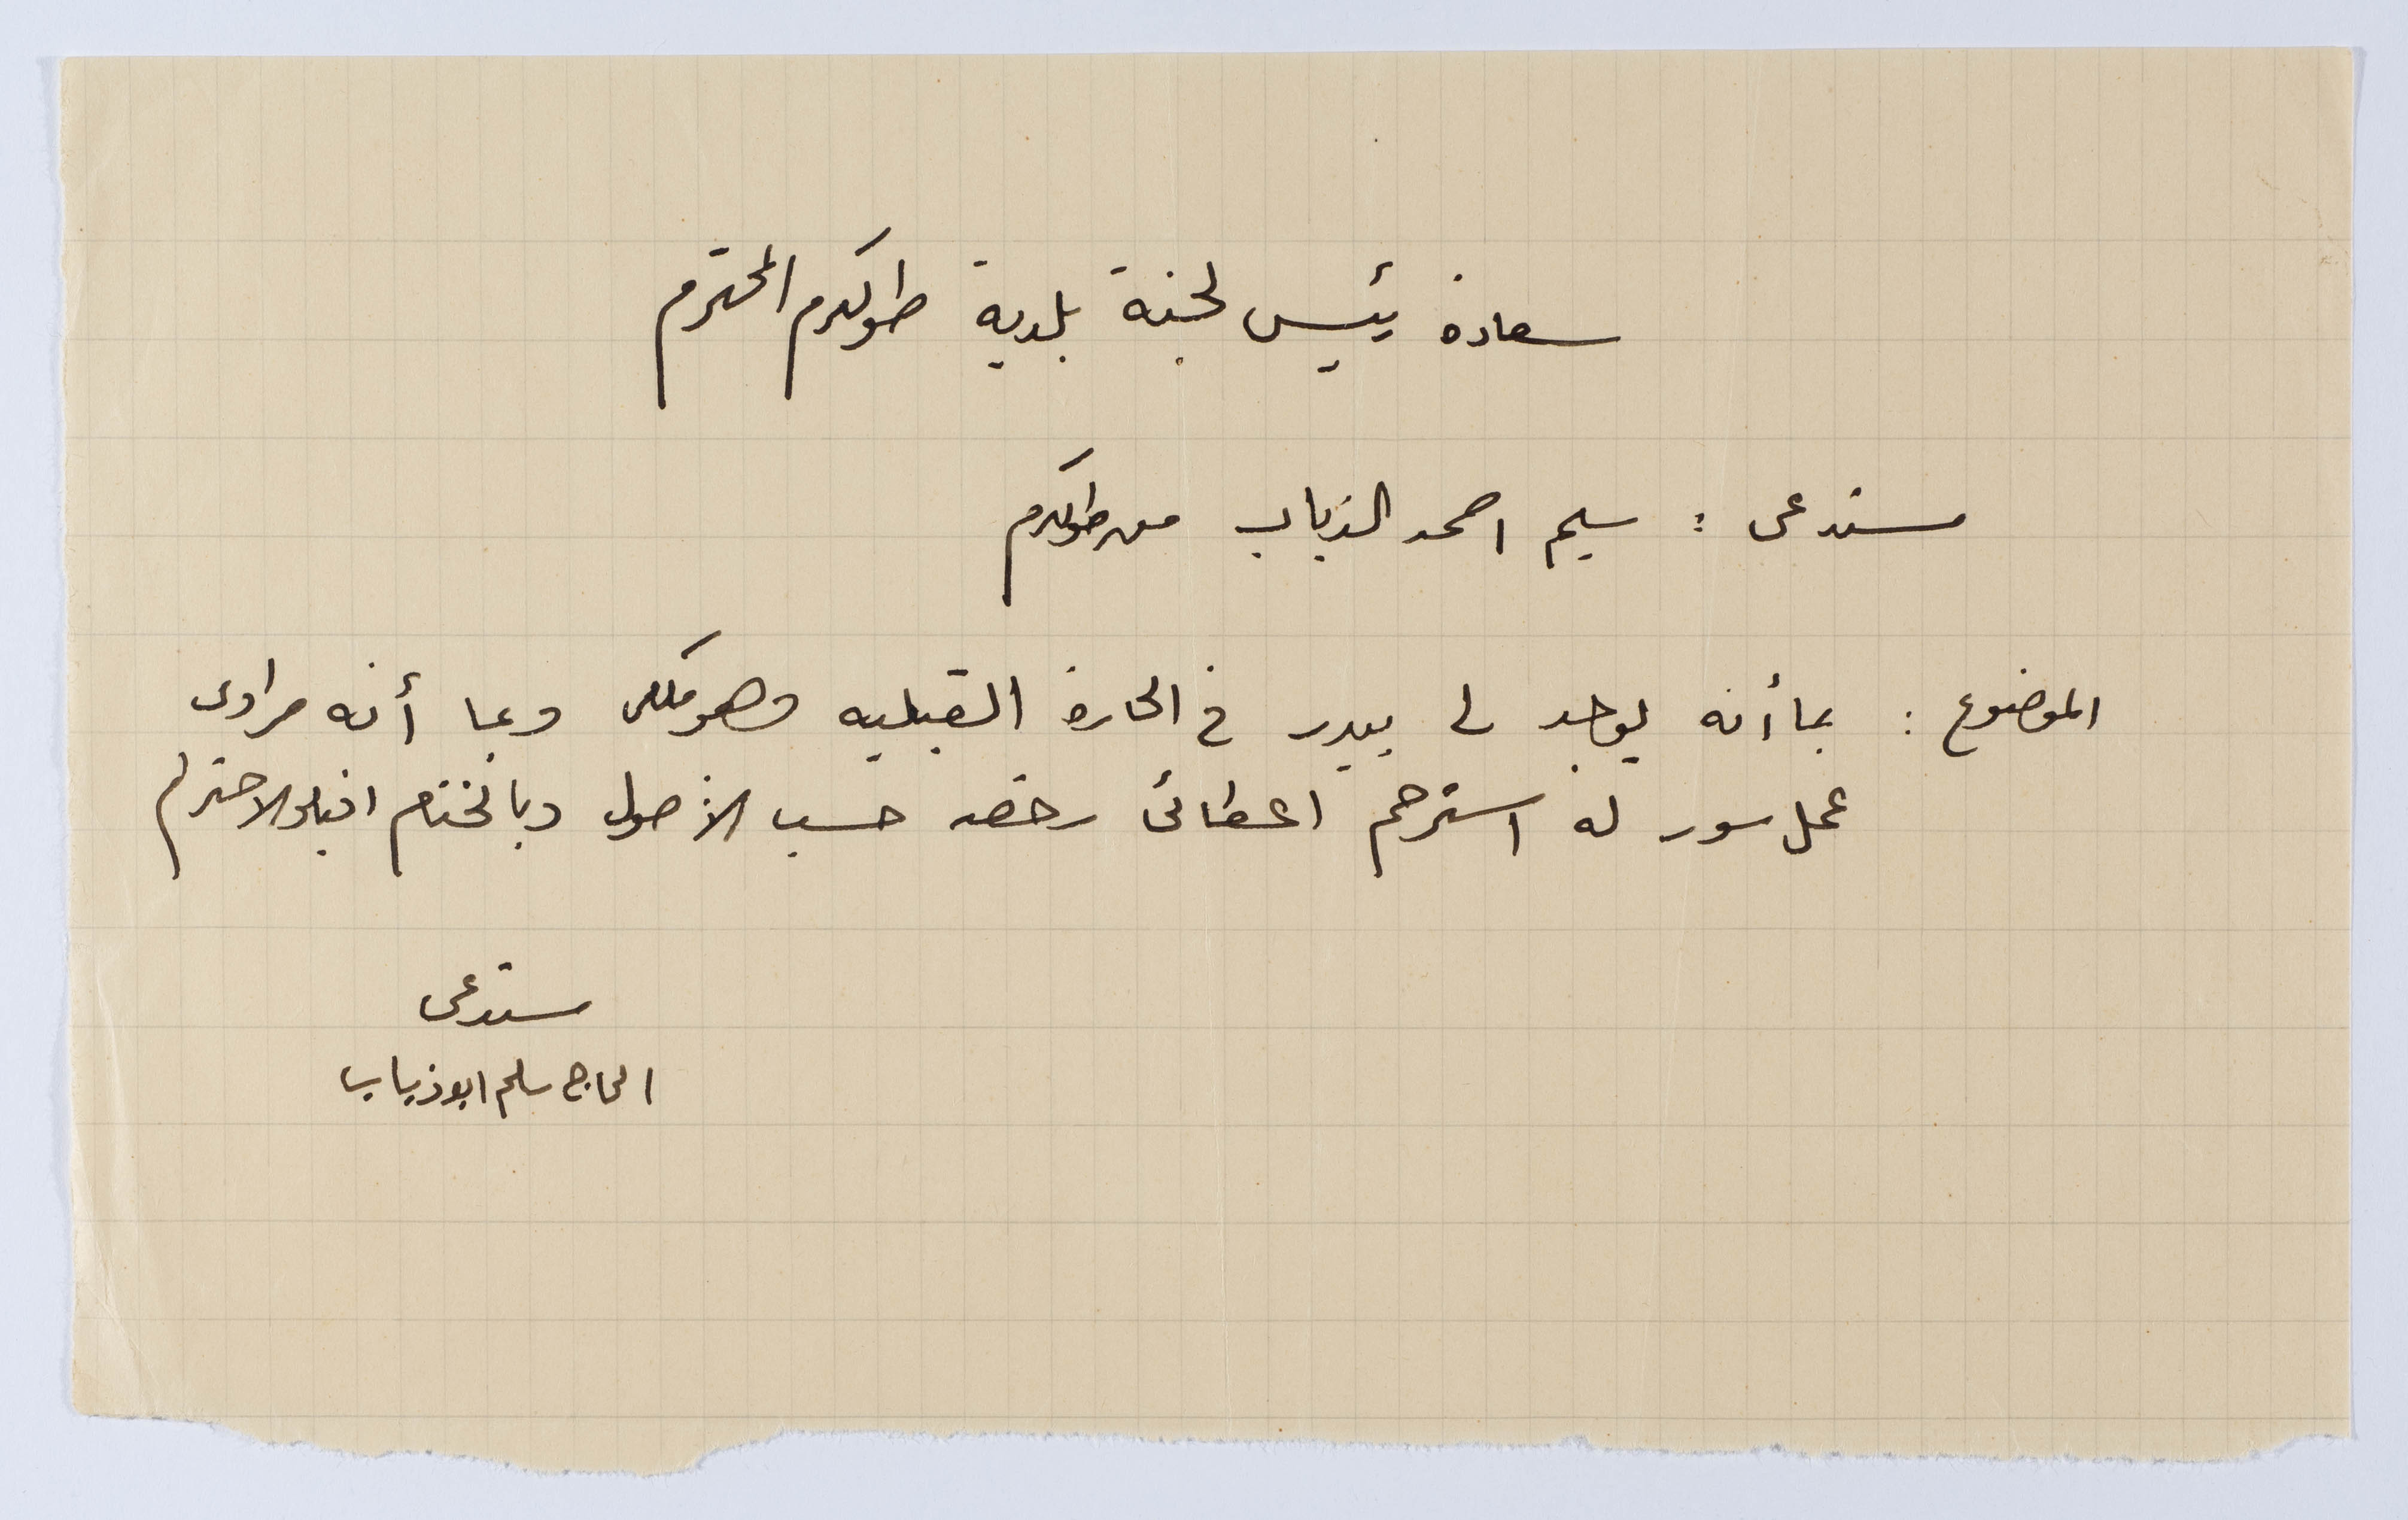 سعادة رئيس لجنة بلدية طولكرم المحترم
مستدعى : سليم احمد الذياب من طولكرم
الموضوع : بما أنه يوجد لي بيدر في الحارة القبليه وهو ملكى وبما أنه مرادى
عمل سور له استرحم اعطائى رخصه حسب الأصول وبالختام اقبلو الاحترام
مستدعى
الحاج سليم ابو ذياب